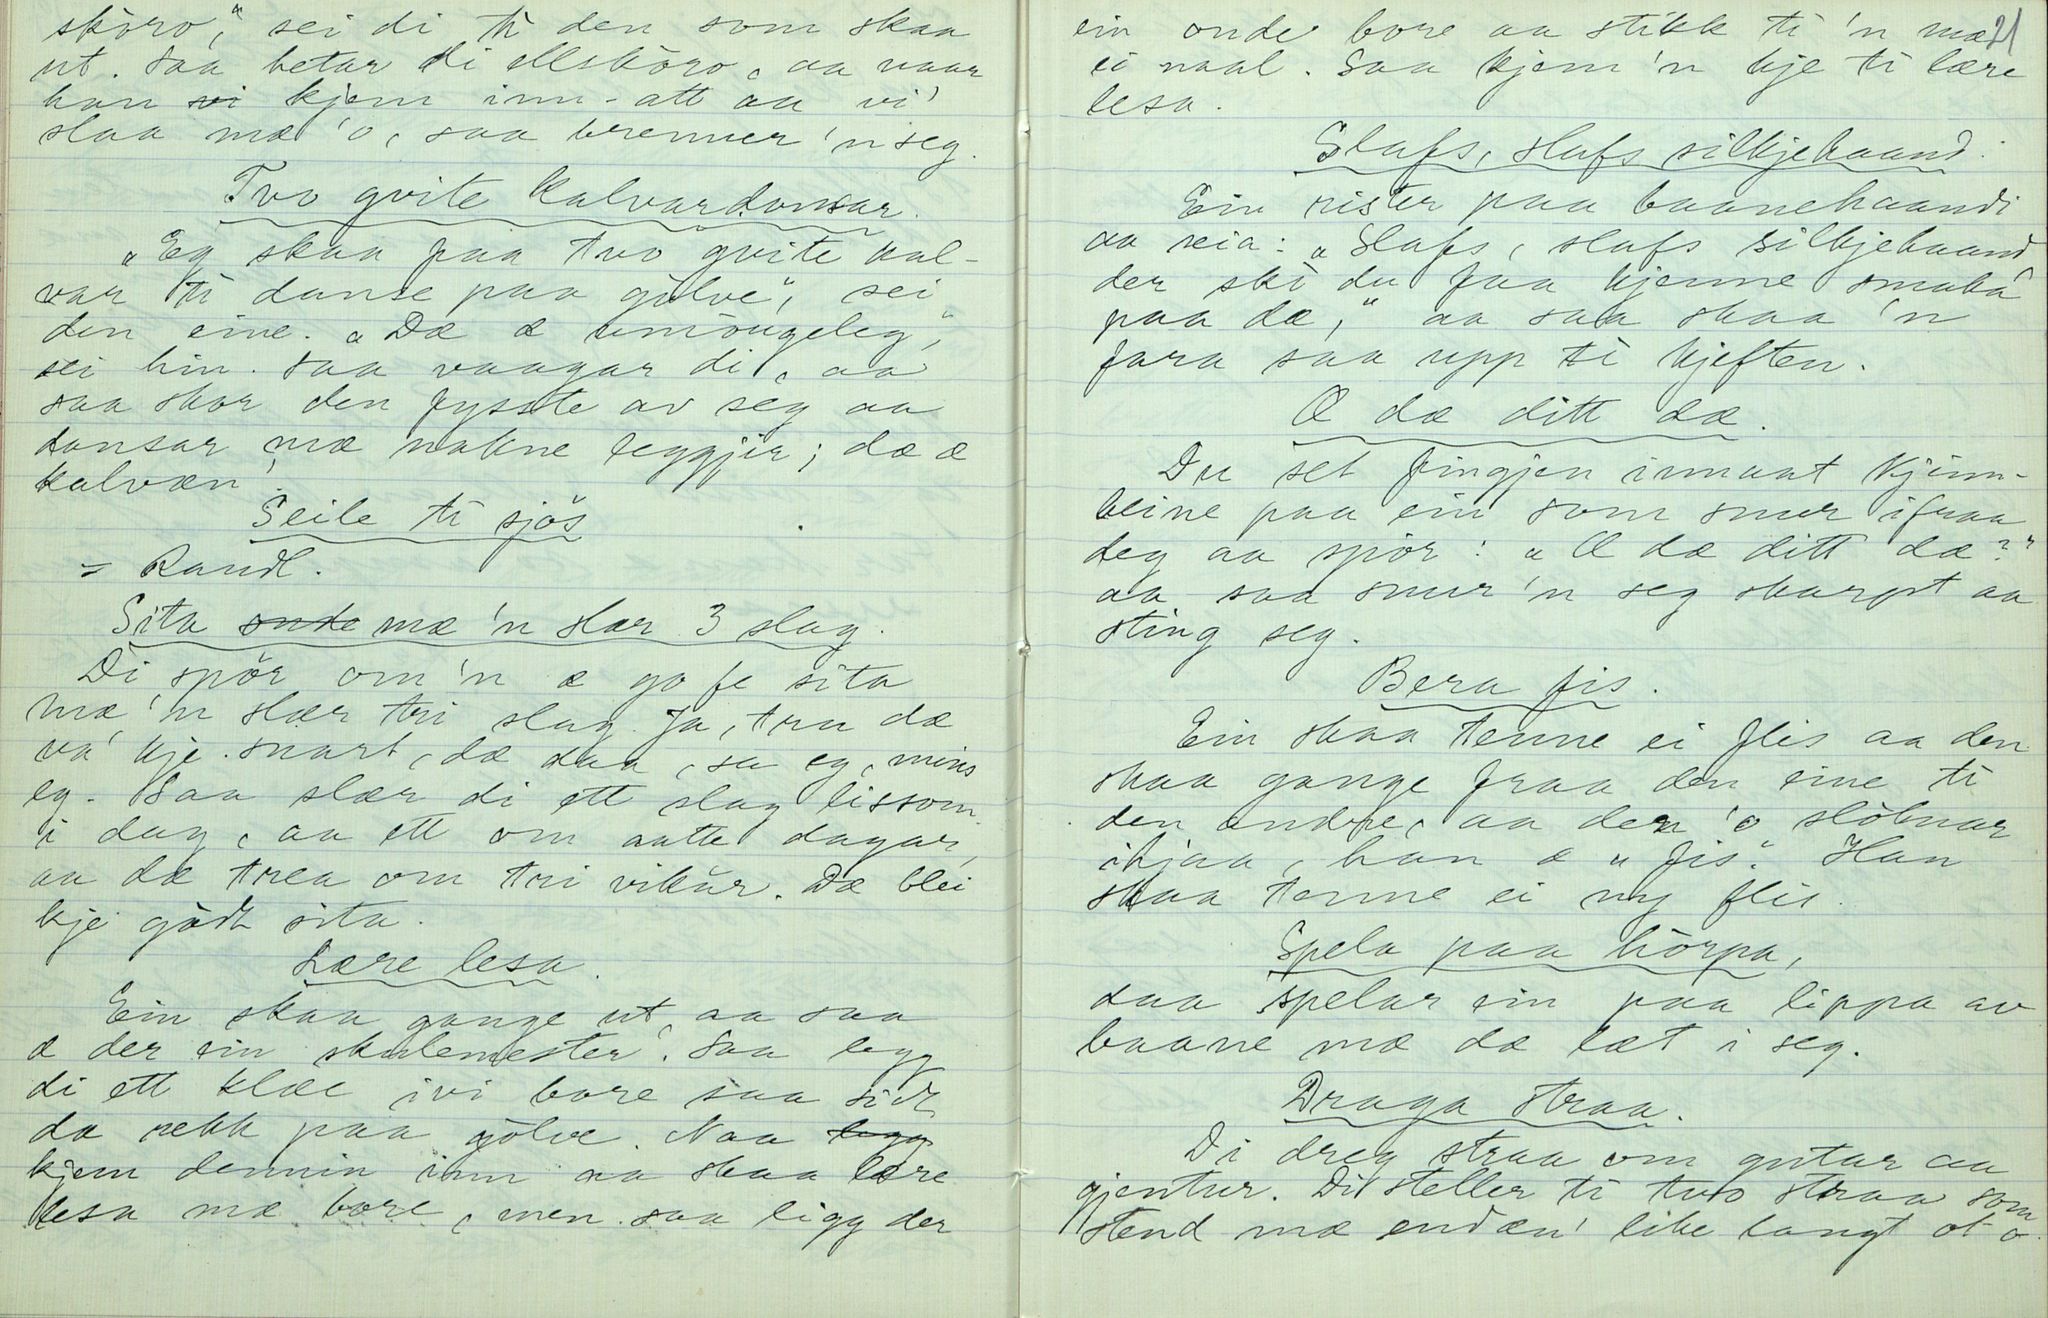 sköro," sei di ti den som skaa
ut. Saa hetar di ellsköro, aa naar
han vi kjem inn-att aa vi'
slaa mæ 'o, saa brenner 'n seg.
Tvo gvite kalvar dansar.
„Eg skaa faa tvo gvite kal-
var ti danse paa gólve", sei
den eine. „Dæ æ umöugeleg",
sei hin. Saa vaagar di, aa
saa skor den fysste av seg aa
dansar mæ nakne leggjir; dæ æ
kalvæn'.
Seile ti sjös
= Randl.
Sita onde mæ 'n slær 3 slag.
Di spör om 'n æ go fe sita
mæ 'n slær tri slag. Ja, tru dæ
va' kje snart, dæ daa, sa eg, mins
eg. Saa slær di ett slag lissom
i dag, aa ett om aatte dagar,
aa dæ trea om tri vikur. Dæ blei
kje gódt sita.
Lære lesa.
Ein skaa gange ut, aa saa
æ der ein skulemester. Saa legg
di ett klæe ivi bore saa sidt
dæ rekk paa gólve. Naa legg
kjem dennin inn aa skaa lære
lesa mæ bore, men saa ligg der
21
ein onde bore aa stikk ti 'n mæ
ei naal. Saa kjem 'n kje ti lære
lesa.
Slafs, slafs silkjebaand.
Ein rister paa baanehaandi
aa seia: „Slafs, slafs silkjebaand
der ski du faa kjenne smaka
paa dæ," aa saa skaa 'n
fara saa upp ti kjeften.
Æ dæ ditt dæ.
Du set fingjen innaat kjinn-
beine paa ein som snur ifraa
deg aa spör: „Æ dæ ditt dæ?"
aa saa snur 'n seg skarpt aa
sting seg.
Bera fis.
Ein skaa tenne ei flis aa den
skaa gange fraa den eine ti
den andre, aa den 'o slöknar
ihjaa, han æ „fis". Han
skaa tenne ei ny flis.
Spela paa hörpa,
daa spelar ein paa lippa av
baane mæ dæ læt i seg.
Draga straa.
Di dreg straa om gutar aa
gjentur. Di steller ti tvo straa som
stend mæ endæn' like langt ot o